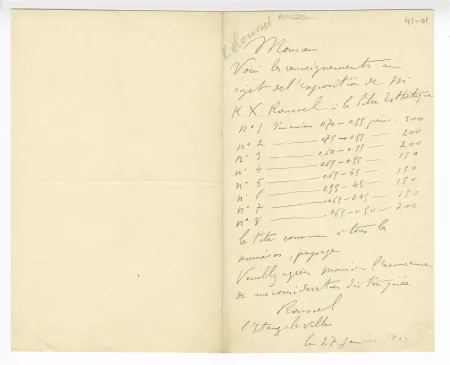 Roussel
41-01
Monsieur
Voici les renseignements au
sujet de l'exposition de Mr
K. X. Roussel à la libre Esthétique
n° 1 Dimension 0.70-0.55 prix 300
n° 2 0.55 200
n° 3 0.60-0.55 200
n° 4 0.65-0.55 150
n° 5 0.65-45 150
n° 6 0.55-45 150
n° 7 0.65-0.45 150
n° 8 0.65-0.50 200
le titre commun à tous les
numéros, paysage
Veuillez agréer monsieur l'assurance
de ma considération distinguée
Roussel
l'Etang la Ville
le 27 Janvier